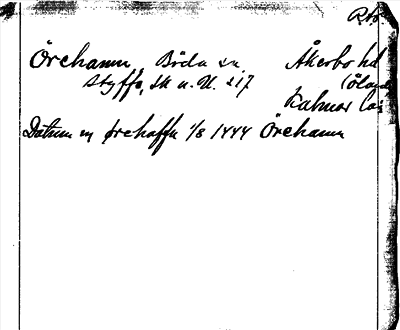 Rbr.
Örehamn, Böda sn Åkerbo hd
Styffe, Sk. u. U. 217 (Öland
Kalmar län
Datum in ørehaffn 1/8 1444 Örehamn